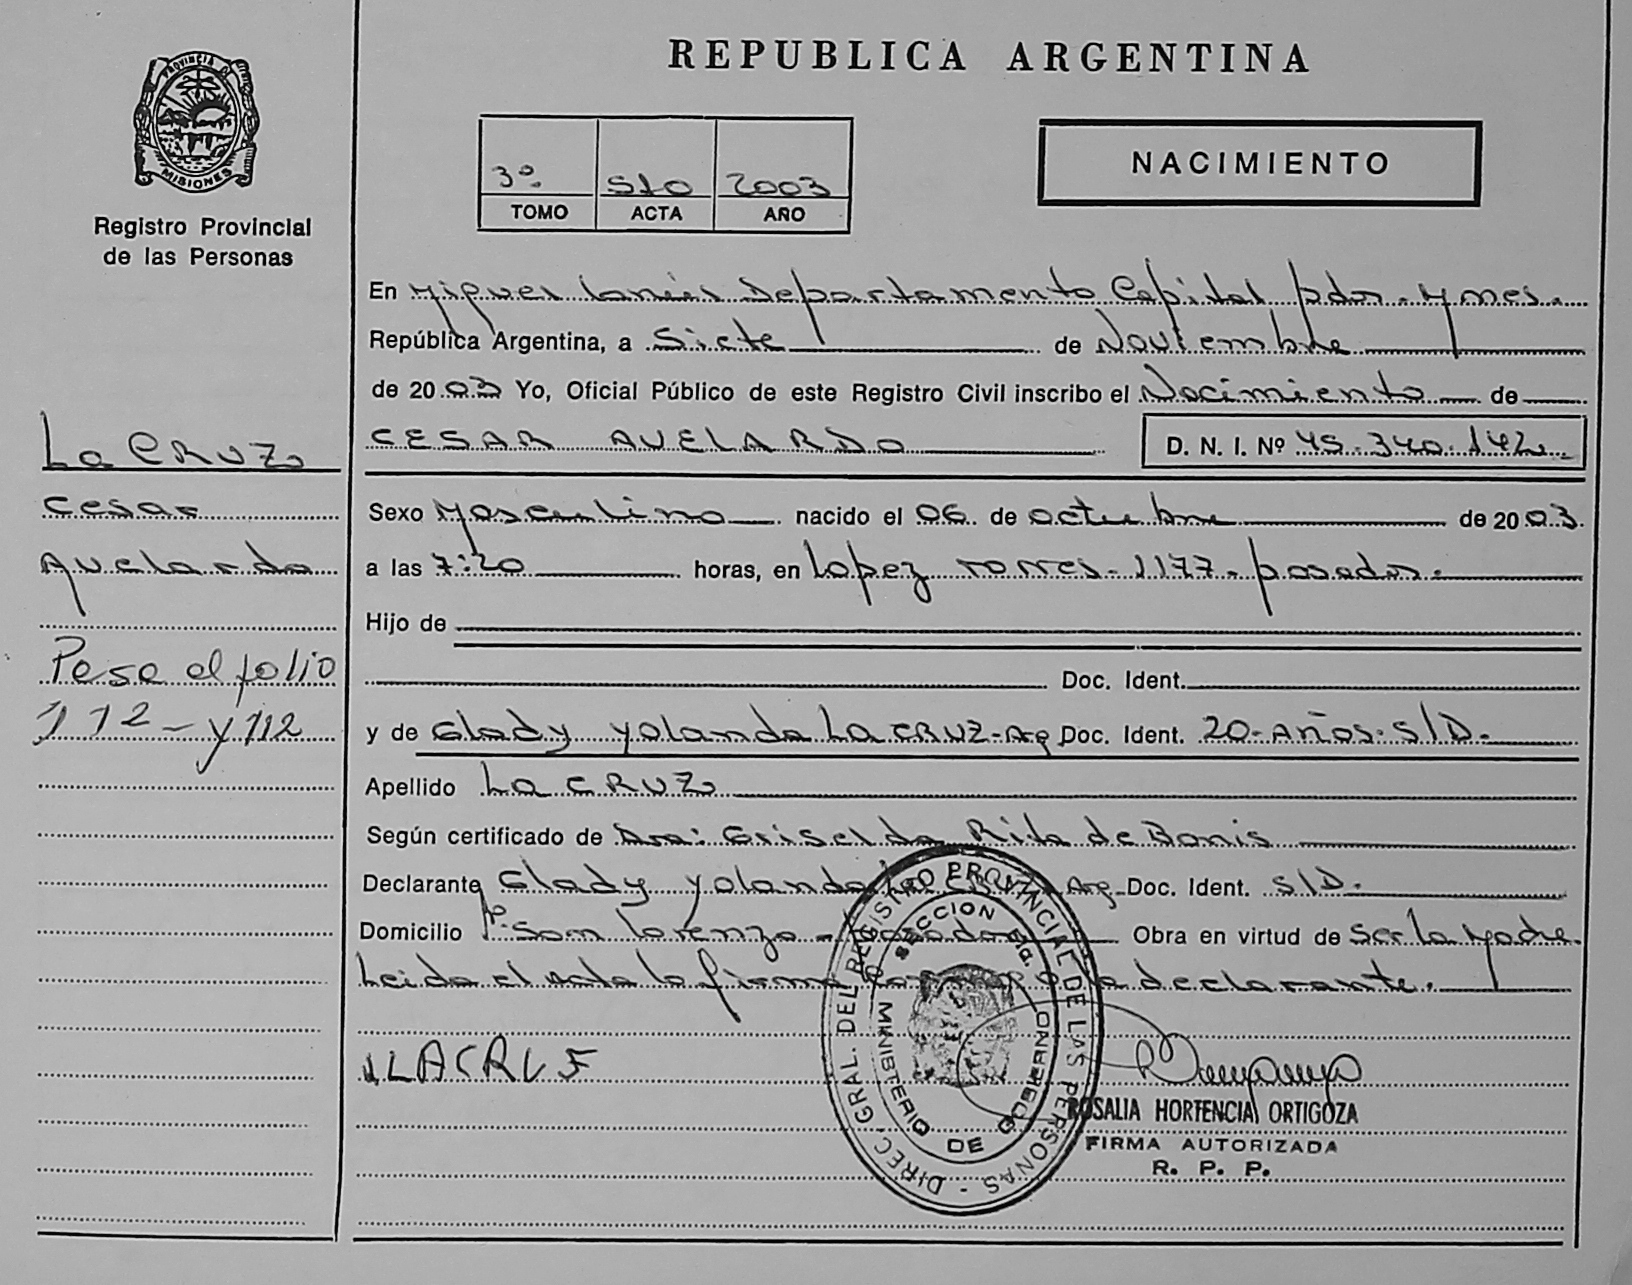 PROVINCIA D
MISIONES
Registro Provincial
de las Personas
REPUBLICA ARGENTINA
3º 510 2003
TOMO ACTA AÑO
NACIMIENTO
En Miguel Lanús Departamento Capital pdas. y mnes.
República Argentina, a Siete de Noviembre
de 2003 Yo, Oficial Público de este Registro Civil inscribo el Nacimiento de
CESAR AVELARDO D. N. I. Nº 45.340.142
Sexo Masculino nacido el 06 de octubre de 2003
a las 7:20 horas, en Lopez Torres 1177 posadas.
Hijo de
Doc. Ident.
y de Glady Yolanda LA CRUZ-Arg Doc. Ident. 20 Años. S/D.
Apellido LA CRUZ
Según certificado de Dra: Griselda Rita de Bonis
Declarante Glady Yolanda Arg Doc. Ident. S/D.
Domicilio San Lorenzo - Posadas Obra en virtud de Ser la Madre.
Leida el Acta la firma la declarante.
LACRUZ
LA CRUZ
Cesar
Avelardo
Pase al folio
112 - y 112
DIREC. GRAL. DEL REGISTRO PROVINCIAL DE LAS PERSONAS -
SECCION
MINISTERIO DE GOBIERNO
ROSALIA HORTENCIA ORTIGOZA
FIRMA AUTORIZADA
R. P. P.